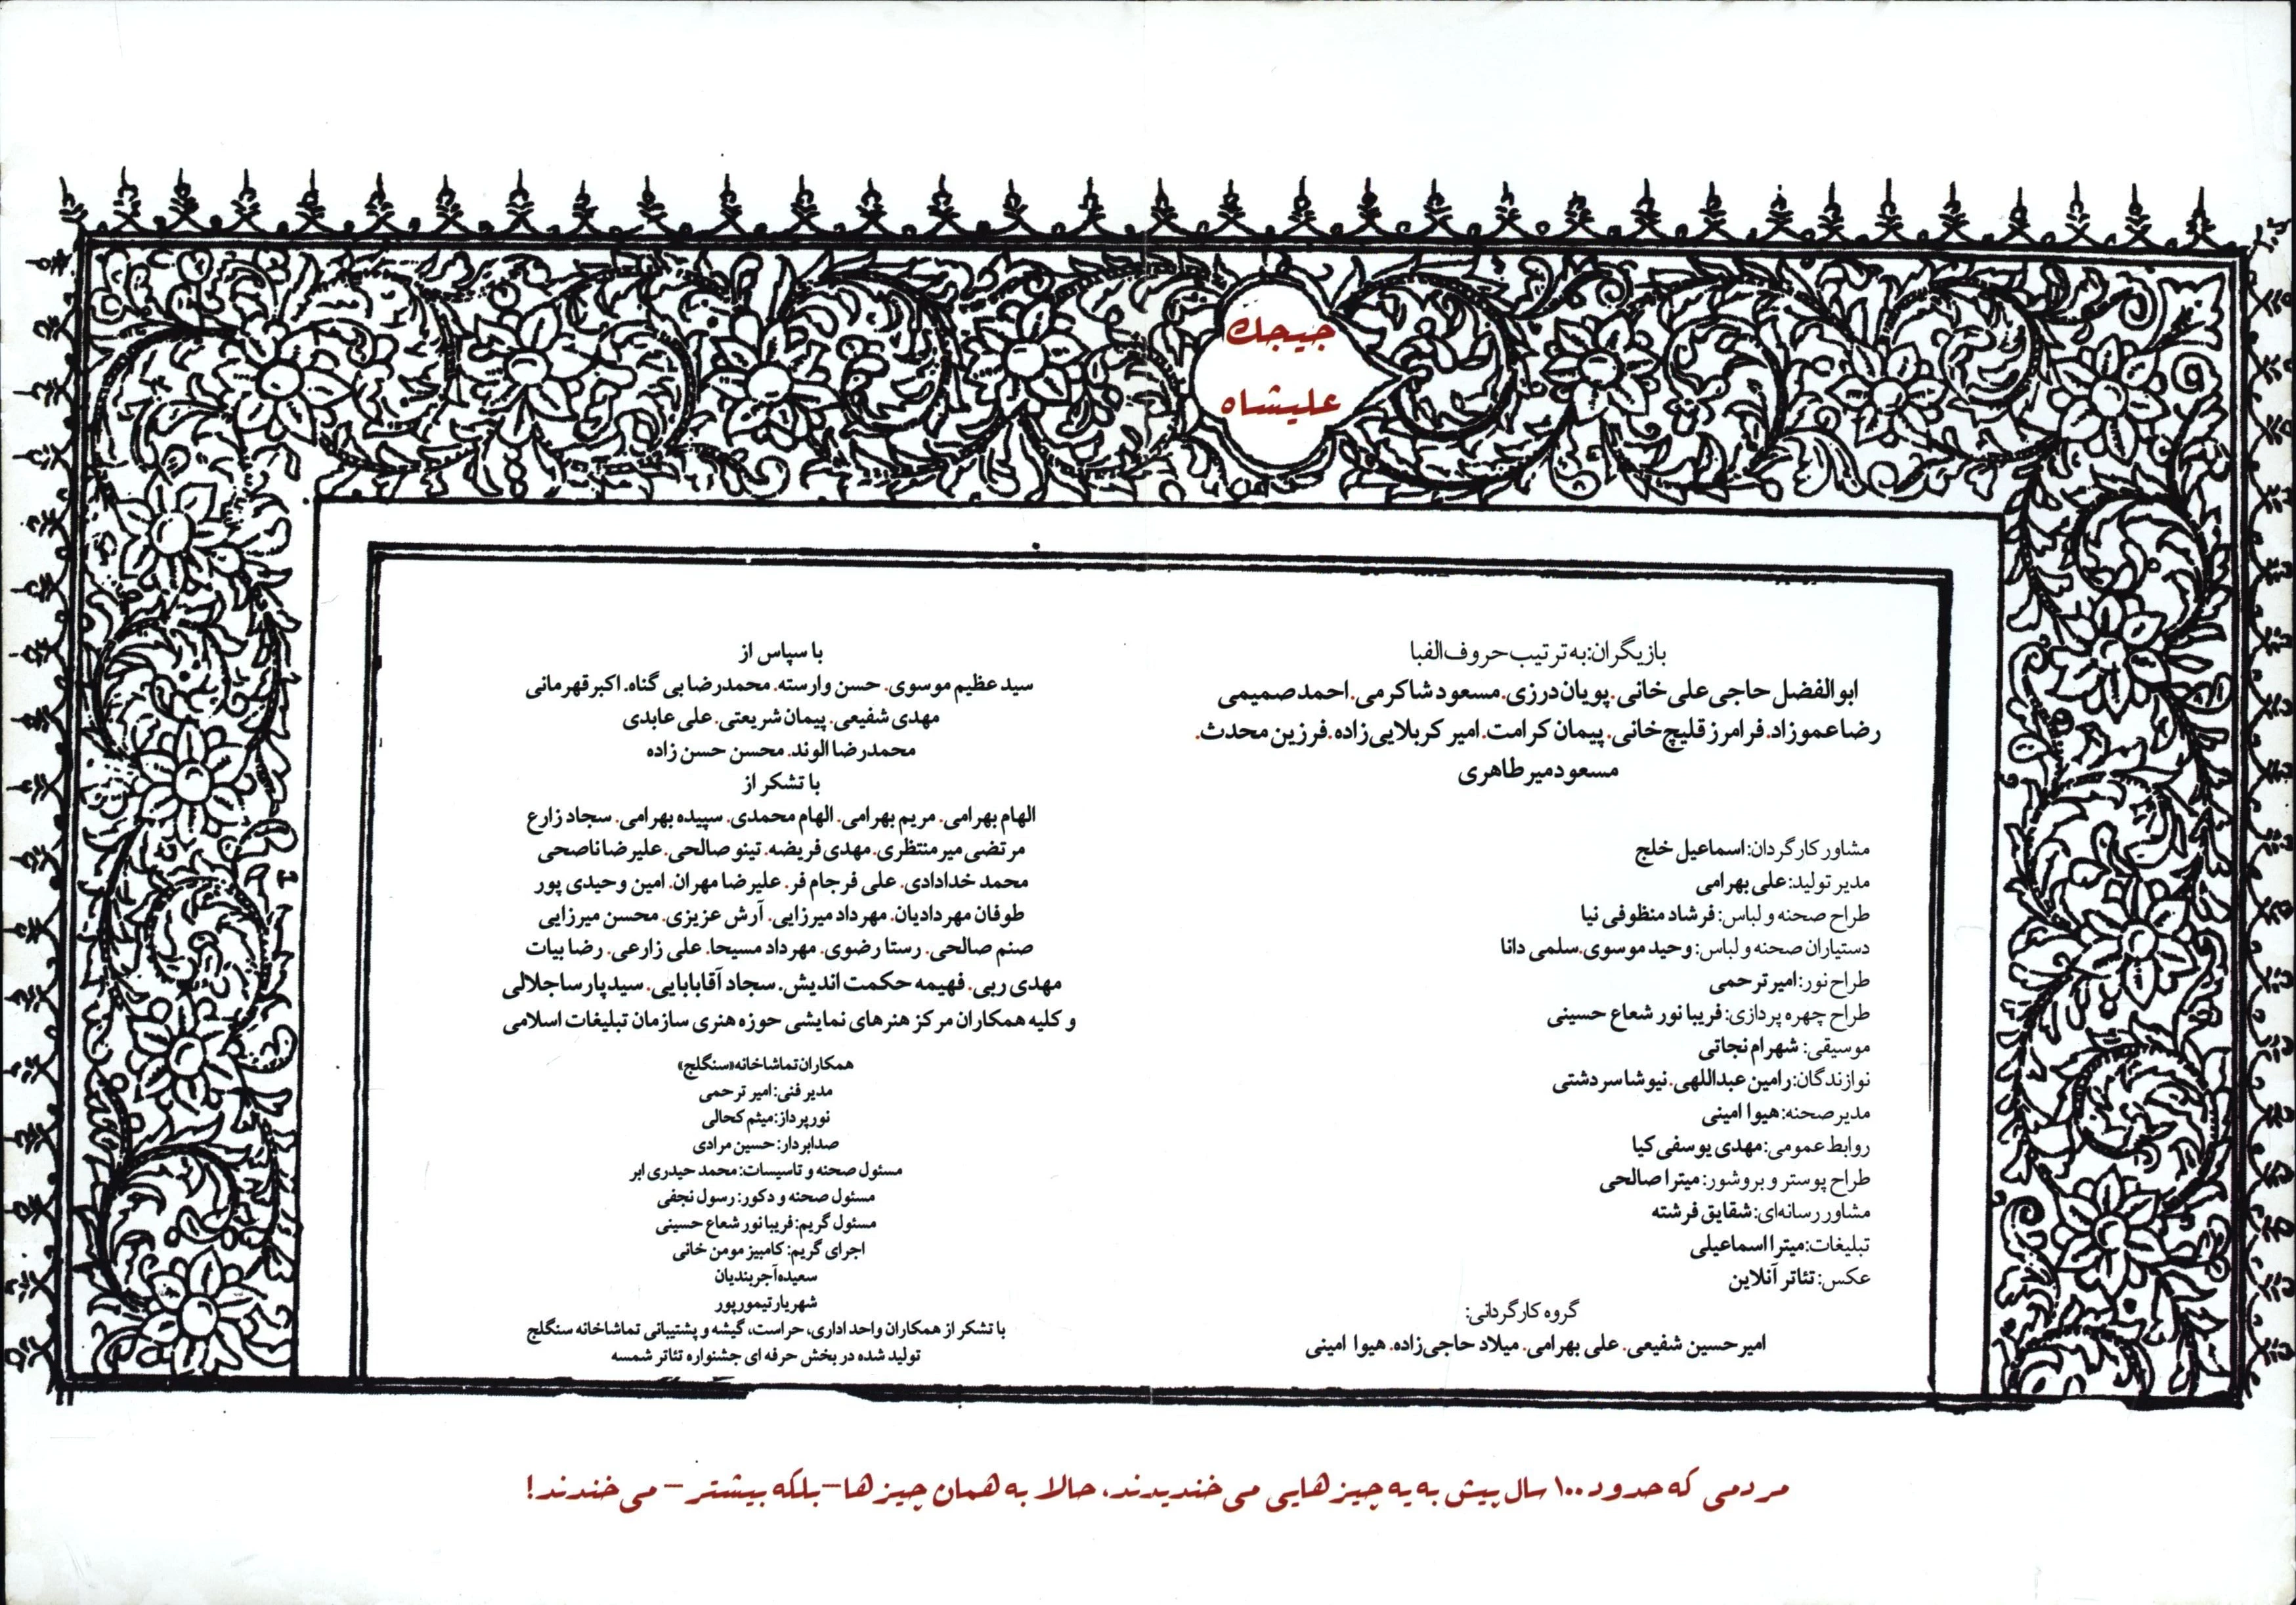 جیجک
علیشاه
بازیگران:به ترتیب حروف الفبا
ابوالفضل حاجی علی خانی.پویان درزی.مسعود شاکرمی.احمد صمیمی
رضا عموزاد.فرامرز قلیچ خانی.پیمان کرامت.امیر کربلایی زاده.فرزین محدث.
مسعود میرطاهری
مشاور کارگردان:اسماعیل خلج
مدیر تولید:علی بهرامی
طراح صحنه و لباس:فرشاد منظوفی نیا
دستیاران صحنه و لباس:وحید موسوی.سلمی دانا
طراح نور:امیر ترحمی
طراح چهره پردازی:فریبا نور شعاع حسینی
موسیقی:شهرام نجاتی
نوازندگان:رامین عبداللهی.نیوشا سردشتی
مدیر صحنه:هیوا امینی
روابط عمومی:مهدی یوسفی کیا
طراح پوستر و بروشور:میترا صالحی
مشاور رسانه‌ای:شقایق فرشته
تبلیغات:میترا اسماعیلی
عکس:تئاتر آنلاین
گروه کارگردانی:
امیرحسین شفیعی.علی بهرامی.میلاد حاجی‌زاده.هیوا امینی
با سپاس از
سید عظیم موسوی.حسن وارسته.محمدرضا بی گناه.اکبر قهرمانی
مهدی شفیعی.پیمان شریعتی.علی عابدی
محمدرضا الوند.محسن حسن زاده
با تشکر از
الهام بهرامی.مریم بهرامی.الهام محمدی.سپیده بهرامی.سجاد زارع
مرتضی میرمنتظری.مهدی فریضه.تینو صالحی.علیرضا ناصحی
محمد خدادادی.علی فرجام فر.علیرضا مهران.امین وحیدی پور
طوفان مهردادیان.مهرداد میرزایی.آرش عزیزی.محسن میرزایی
صنم صالحی.رستا رضوی.مهرداد مسیحا.علی زارعی.رضا بیات
مهدی ربی.فهیمه حکمت اندیش.سجاد آقابابایی.سید پارسا جلالی
و کلیه همکاران مرکز هنرهای نمایشی حوزه هنری سازمان تبلیغات اسلامی
همکاران تماشاخانه«سنگلج»
مدیر فنی:امیر ترحمی
نورپرداز:میثم کحالی
صدابردار:حسین مرادی
مسئول صحنه و تاسیسات:محمد حیدری ابر
مسئول صحنه و دکور:رسول نجفی
مسئول گریم:فریبا نور شعاع حسینی
اجرای گریم:کامبیز مومن خانی
سعیده آجربندیان
شهریار تیمورپور
با تشکر از همکاران واحد اداری، حراست، گیشه و پشتیبانی تماشاخانه سنگلج
تولید شده در بخش حرفه ای جشنواره تئاتر شمسه
مردمی که حدود ۱۰۰ سال پیش به یه چیزهایی می خندیدند، حالا به همان چیزها-بلکه بیشتر-می خندند!